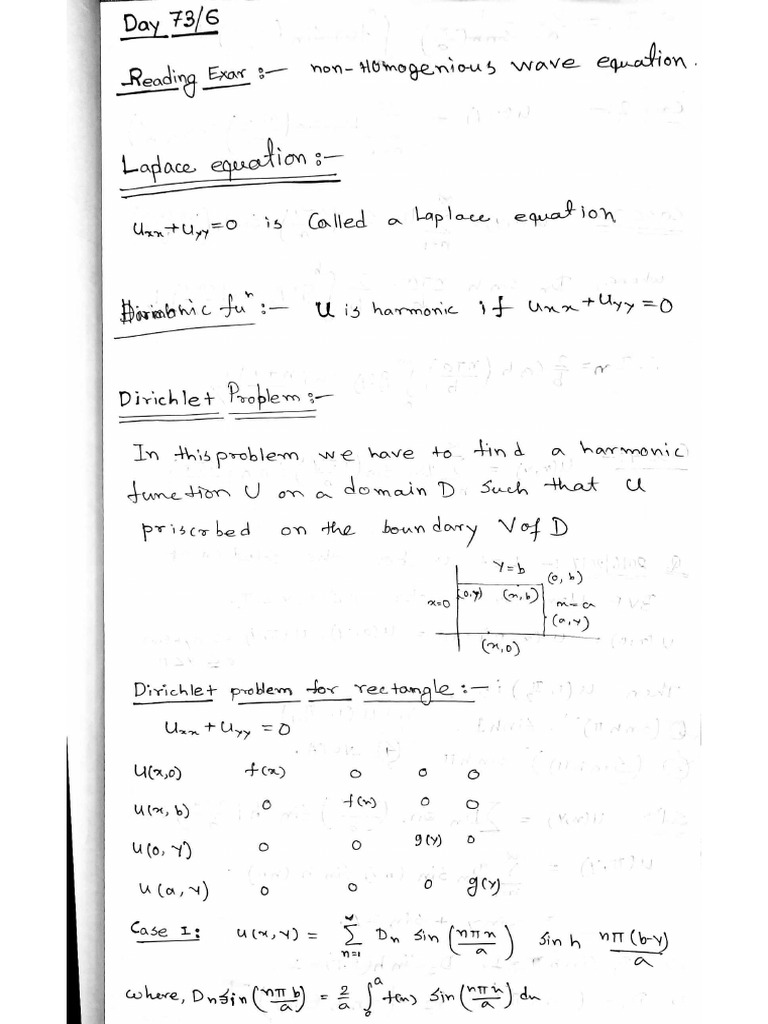 Day 73/6
Reading Exar :— non-Homogenious wave equation.
Laplace equation :—
Uxx+Uyy=0 is Called a Laplace equation
Harmonic fuⁿ :— U is harmonic if Uxx+Uyy=0
Dirichlet Problem :—
In this problem we have to find a harmonic
function U on a domain D, such that U
priscrbed on the boundary V of D
Y=b
(0, b)
x=0 (0,y) (x,b) x=a
(a,Y)
(x,0)
Dirichlet problem for rectangle :—
Uxx+Uyy=0
U(x,0) f(x) 0 0 0
U(x, b) 0 f(x) 0 0
U(0, Y) 0 0 g(Y) 0
U(a, Y) 0 0 0 g(Y)
Case I: U(x,Y) = ∑ n=1 Dn Sin (nπx/a) Sinh nπ(b-Y)/a
where, Dn Sin (nπb/a) = 2/a ∫₀ᵃ f(x) Sin (nπx/a) dx